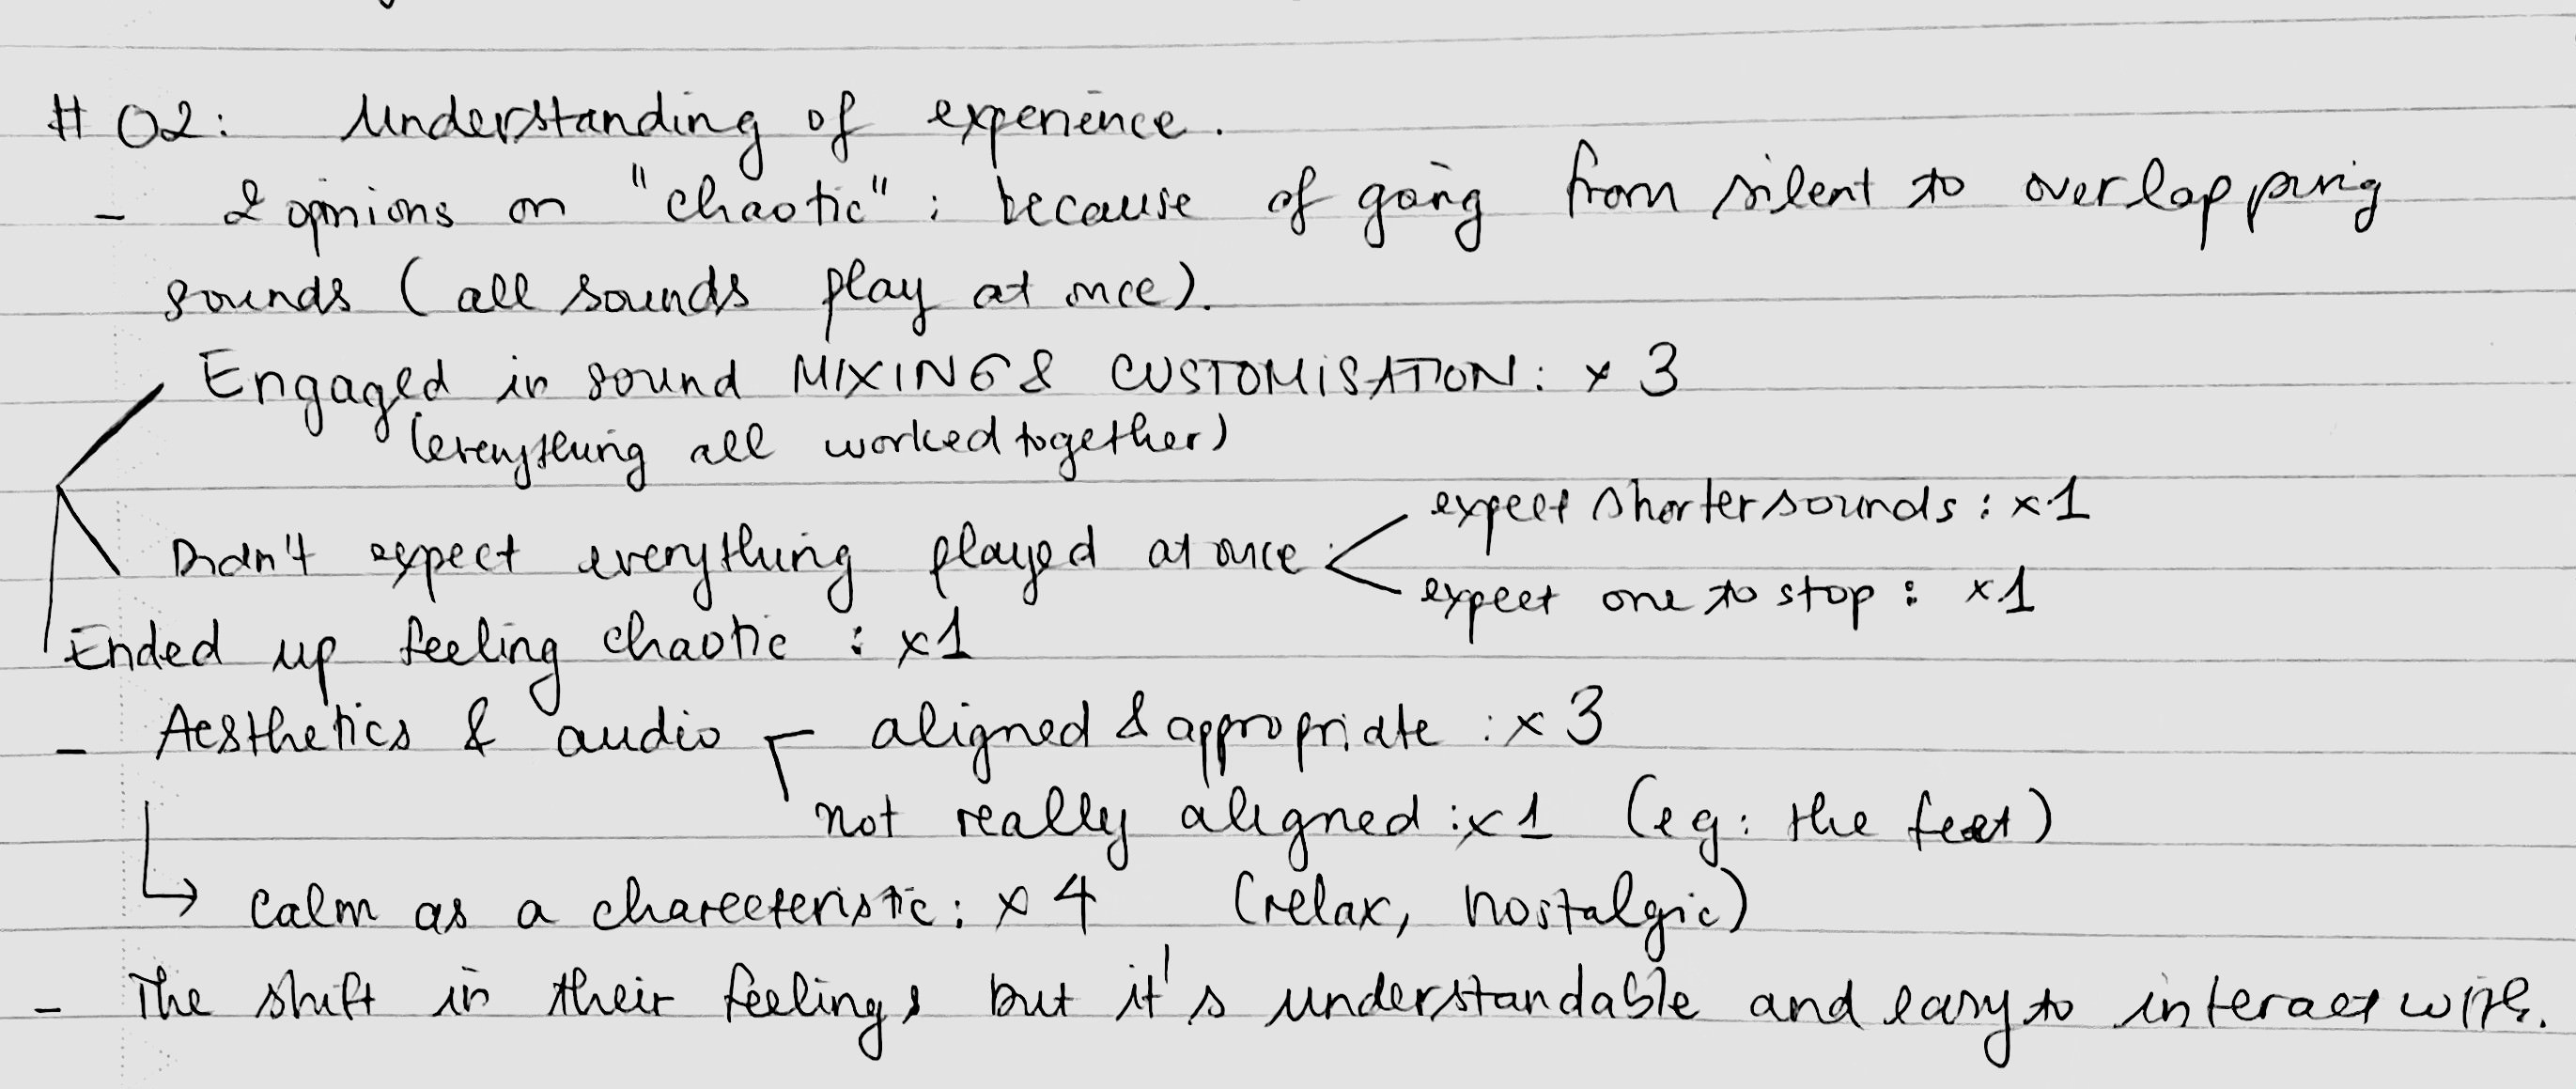 # 02: Understanding of experience.
- 2 opinions on "chaotic": because of going from silent to overlapping
sounds (all sounds play at once).
Engaged in sound MIXING & CUSTOMISATION: x 3
(everything all worked together)
expect shorter sounds: x1
Didn't expect everything played at once:
expect one to stop: x1
Ended up feeling chaotic: x1
- Aesthetics & audio aligned & appropriate: x 3
not really aligned: x1 (eg: the feet)
↳ calm as a charecteristic: x 4 (relax, nostalgic)
- The shift in their feelings but it's understandable and easy to interact with.